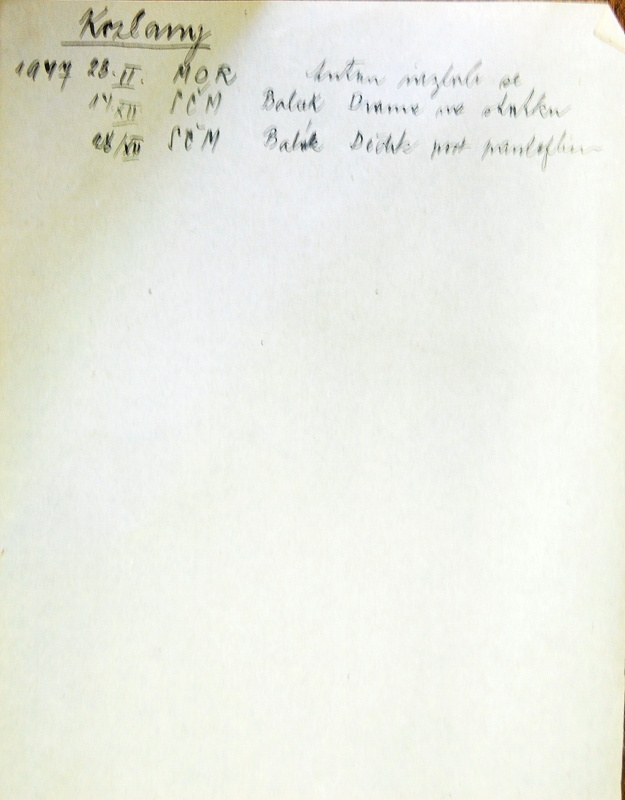 Kozlany
1947 23. II. MOR Anton nezlob se
14/XII SČM Balák Drama na statku
28/XII SČM Balák Dědek pod pantoflem